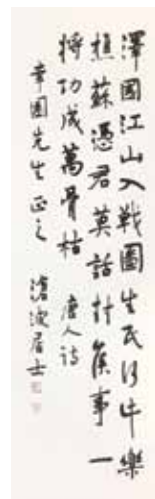 澤國江山入戰圖生民何計樂
樵蘇憑君莫話封侯事一
將功成萬骨枯 唐人詩
園先生正之 滄波居士